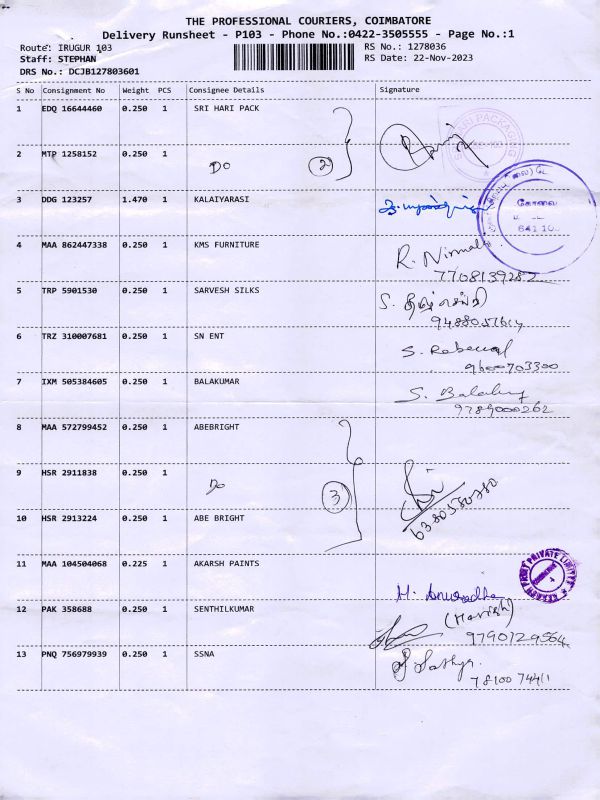 THE PROFESSIONAL COURIERS, COIMBATORE
Delivery Runsheet - P103 - Phone No.:0422-3505555 - Page No.:1
Route: IRUGUR 103 RS No.: 1278036
Staff: STEPHAN RS Date: 22-Nov-2023
DRS No.: DCJB127803601
S No Consignment No Weight PCS Consignee Details Signature
1 EDQ 16644460 0.250 1 SRI HARI PACK
2 MTP 1258152 0.250 1 DO 2
3 DDG 123257 1.470 1 KALAIYARASI
கோவை
641 10
4 MAA 862447338 0.250 1 KMS FURNITURE R. Nirmala
7708139282
5 TRP 5901530 0.250 1 SARVESH SILKS S.
9488051614
6 TRZ 310007681 0.250 1 SN ENT S.
9600703300
7 IXM 505384605 0.250 1 BALAKUMAR S.
9789000262
8 MAA 572799452 0.250 1 ABEBRIGHT
9 HSR 2911838 0.250 1 DO 3
6380580780
10 HSR 2913224 0.250 1 ABE BRIGHT
11 MAA 104504068 0.225 1 AKARSH PAINTS H. Anuradha
12 PAK 358688 0.250 1 SENTHILKUMAR (Harish)
9790129564
13 PNQ 756979939 0.250 1 SSNA Sathya.
7810074411